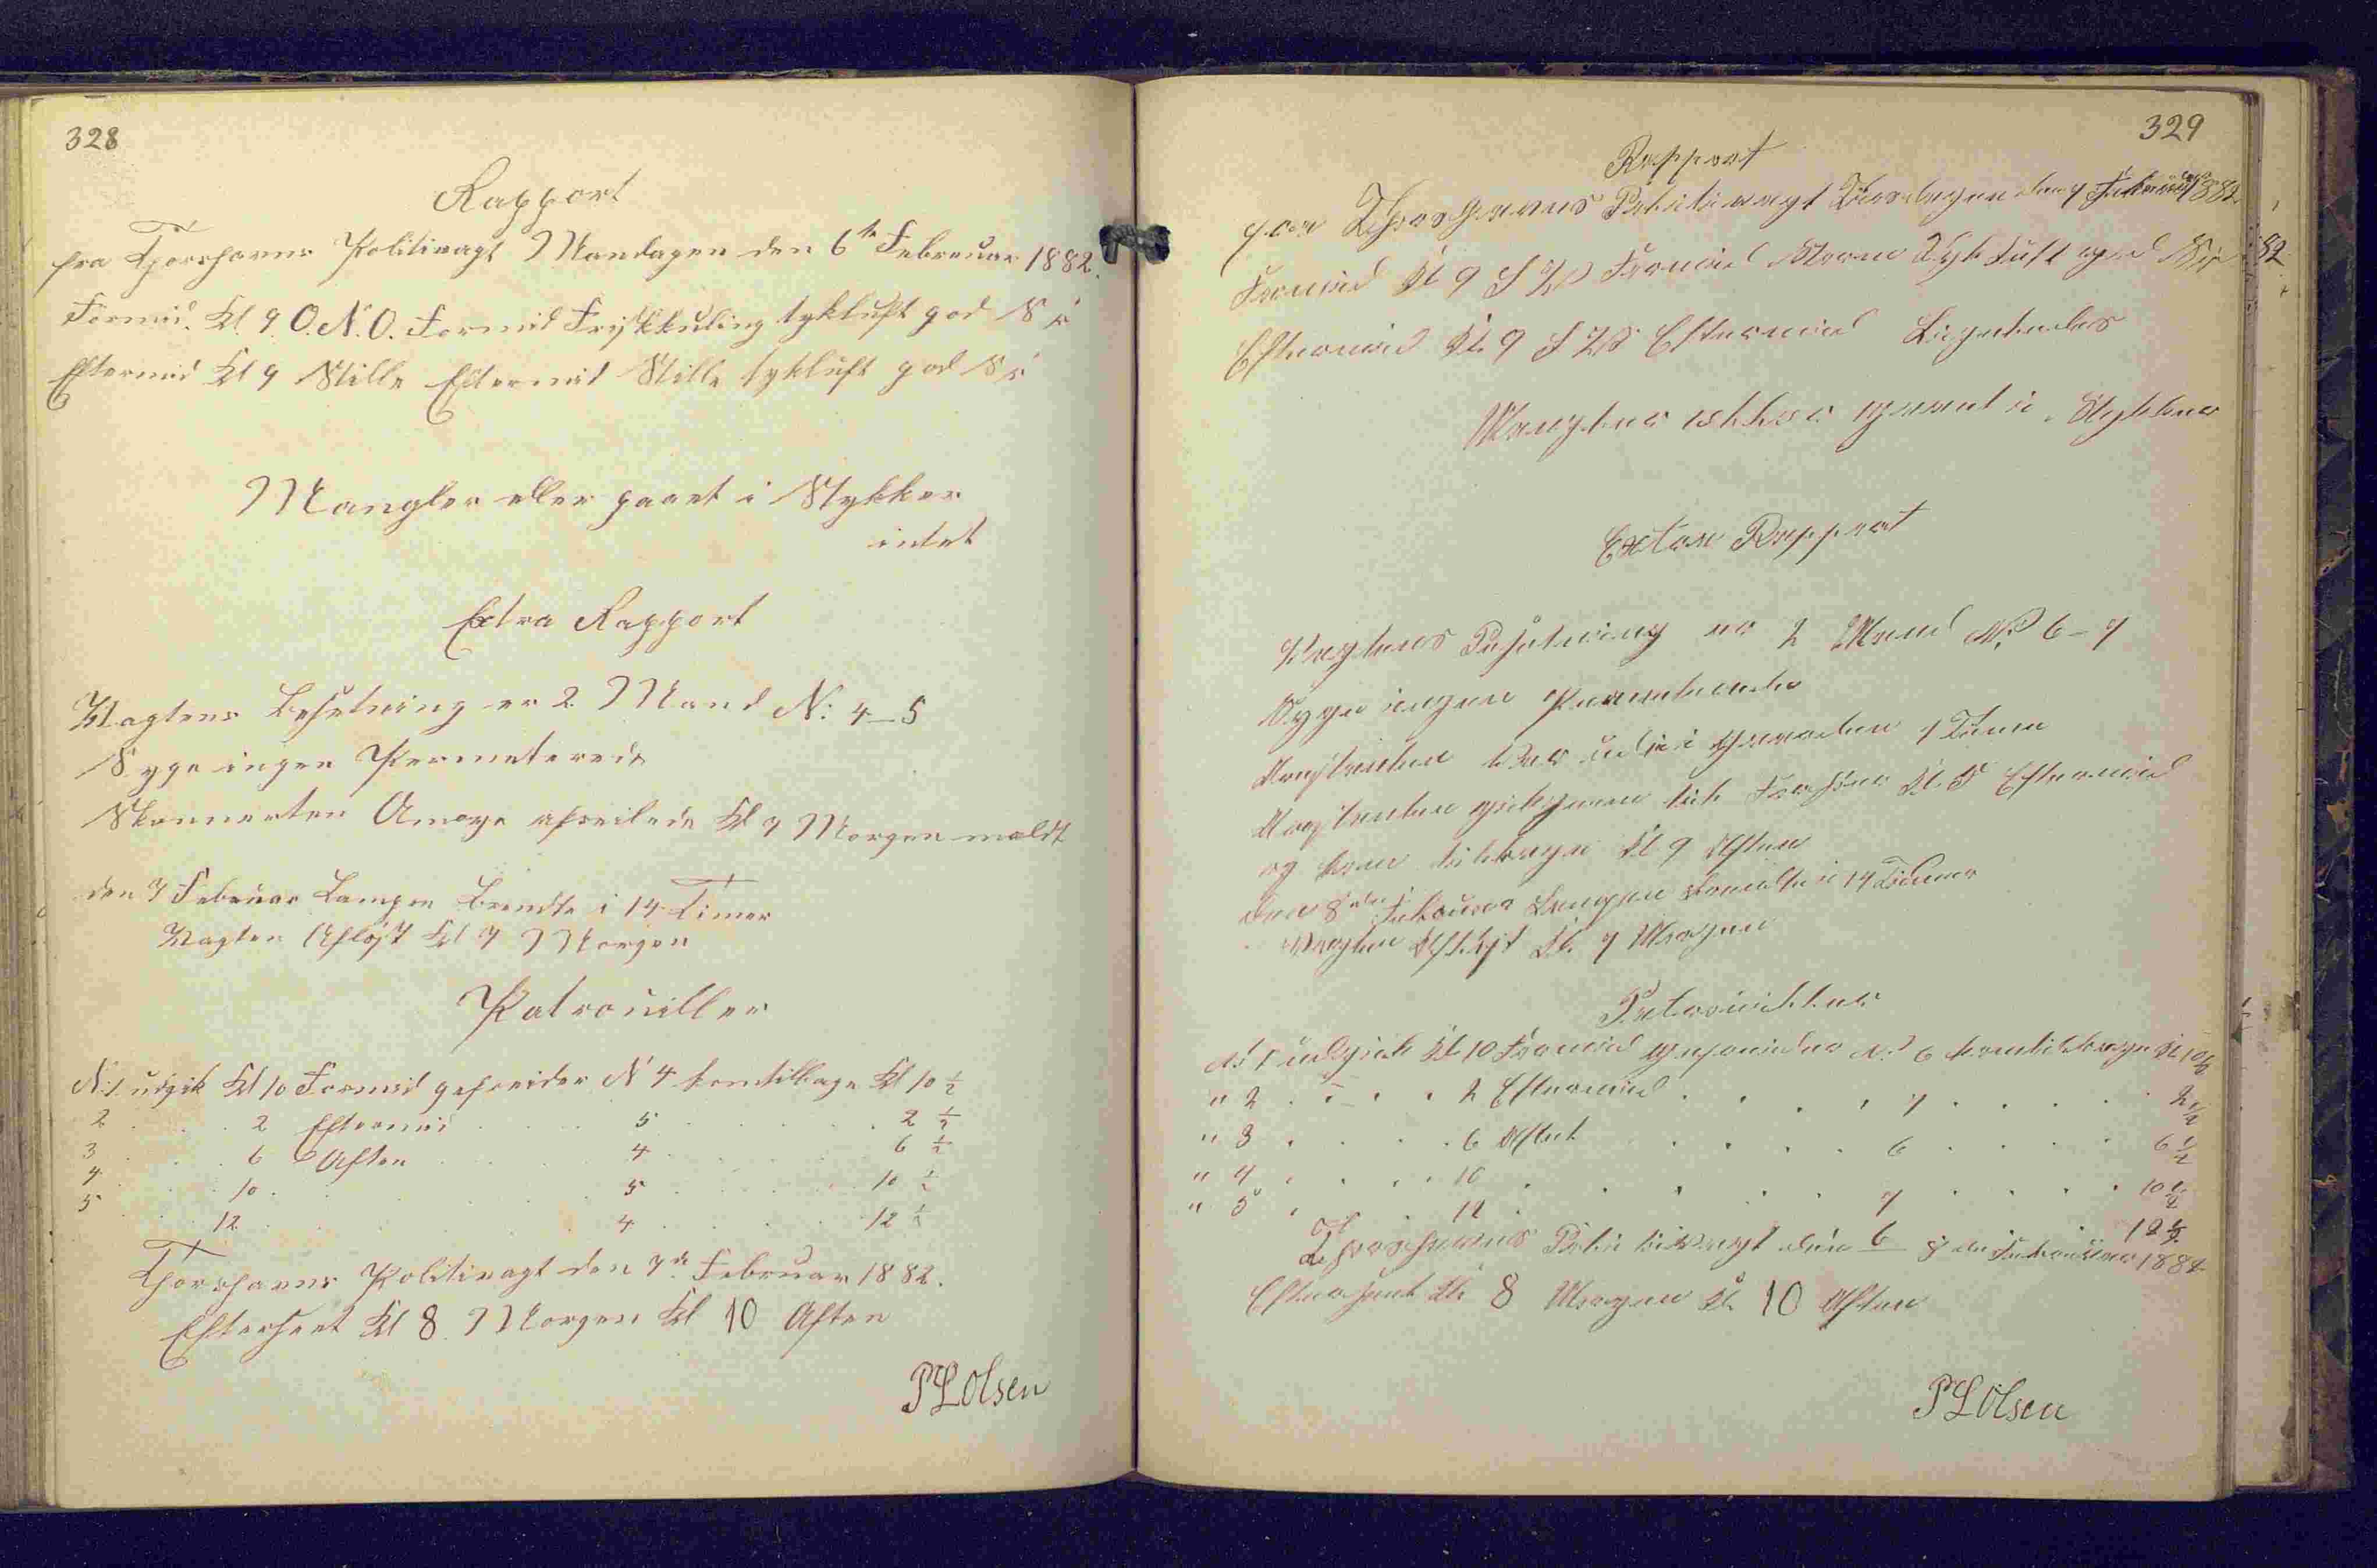 328
Rapport
fra Thorshavns Politivagt Mandagen den 6te Februar 1882.
Formid. Kl 9 O.N.O. Formid Friskkuling tykluft god Sø
Eftermid Kl 9 Stille Eftermid Stille tykluft god Sø
Mangler eller gaaet i Stykker
intet
Extra Rapport
Vagtens Besetning er 2 Mand N: 4-5
Syge ingen Permeterede
Skonnerten Amoye afseilede Kl 7 Morgen
den 7 Februar Lampen Brendte i 14 Timer
Vagten Afløst Kl 7 Morgen
Patrouiller
N:1 udgik Kl 10 Formid gefreider N 4 kom tilbage Kl 10 ½
2 . . . 2 Eftermid . . . 5 . . . 2 ½
3 . . . 6 Aften . . . 4 . . . 6 ½
4 . . . 10 . . . 5 . . . 10 ½
5 . . . 12 . . . 4 . . . 12 ½
Thorshavns Politivagt den 7de Februar 1882.
Efterseet Kl 8 Morgen Kl 10 Aften
PLOlsen
329
Rapport
fra Thorshavns Politivagt Tirsdagen den 7 Februar 1882.
Formid Kl 9 Formid Storm Tyk Luft god Sø
Eftermid Kl 9 Eftermid Ligeledes
Mangler eller gaaet i Stykker
Extra Rapport
Vagtens Besetning er 2 Mand No 6-7
Syge ingen Permeterede
Arestanten var ude i Gaarden 1 Time
Arestanten gik hjem til Forhør Kl. 5 Eftermid
og kom tilbage Kl 9 Aften
den 8de Februar Lampen Brendte i 14 Timer
Vagten Afløst Kl. 7 Morgen
Patrouiller
No 1 udgik Kl 10 Formid gefreider No 6 kom tilbage Kl 10½
" 2 . . . 2 Eftermid . . . 7 . . . 2½
" 3 . . . 6 Aften . . . 6 . . . 6½
" 4 . . . 10 . . . 7 . . . 10½
" 5 . . . 12 . . . 6 . . . 12½
Thorshavns Politivagt den 8de Februar 1882
Efterseet Kl. 8 Morgen Kl. 10 Aften
PLOlsen